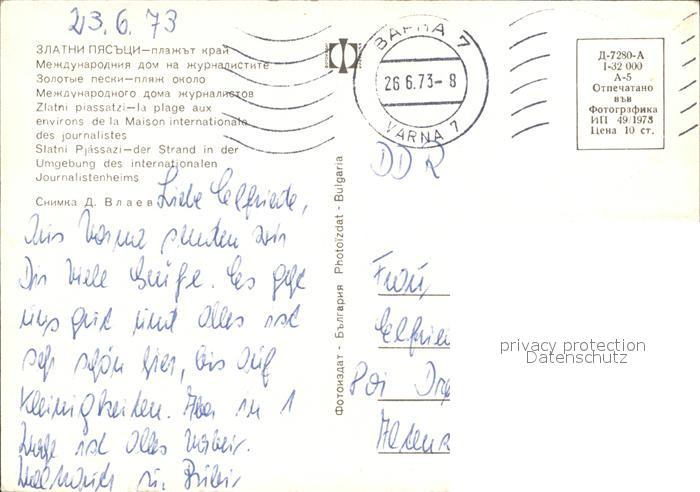 23.6.73
ЗЛАТНИ ПЯСЪЦИ—плажът край
Международния дом на журналистите
Золотые пески—пляж около
Международного дома журналистов
Zlatni piassatzi—la plage aux
environs de la Maison internationale
des journalistes
Slatni Pjassazi—der Strand in der
Umgebung des internationalen
Journalistenheims
Снимка Д. Влаев
Liebe Elfriede,
Aus Varna senden wir
Dir viele Grüße. Es geht
uns gut und alles ist
sehr schön hier, bis auf
Kleinigkeiten. Aber in 1
Woche ist alles vorbei.
in
Фотоиздат - България Photoizdat - Bulgaria
ВАРНА 7
26.6.73-8
VARNA 7
Д-7280-А
I-32 000
А-5
Отпечатано
във
Фотографика
ИП 49/1973
Цена 10 ст.
DDR
Frau
Elfrie
privacy protection
Datenschutz